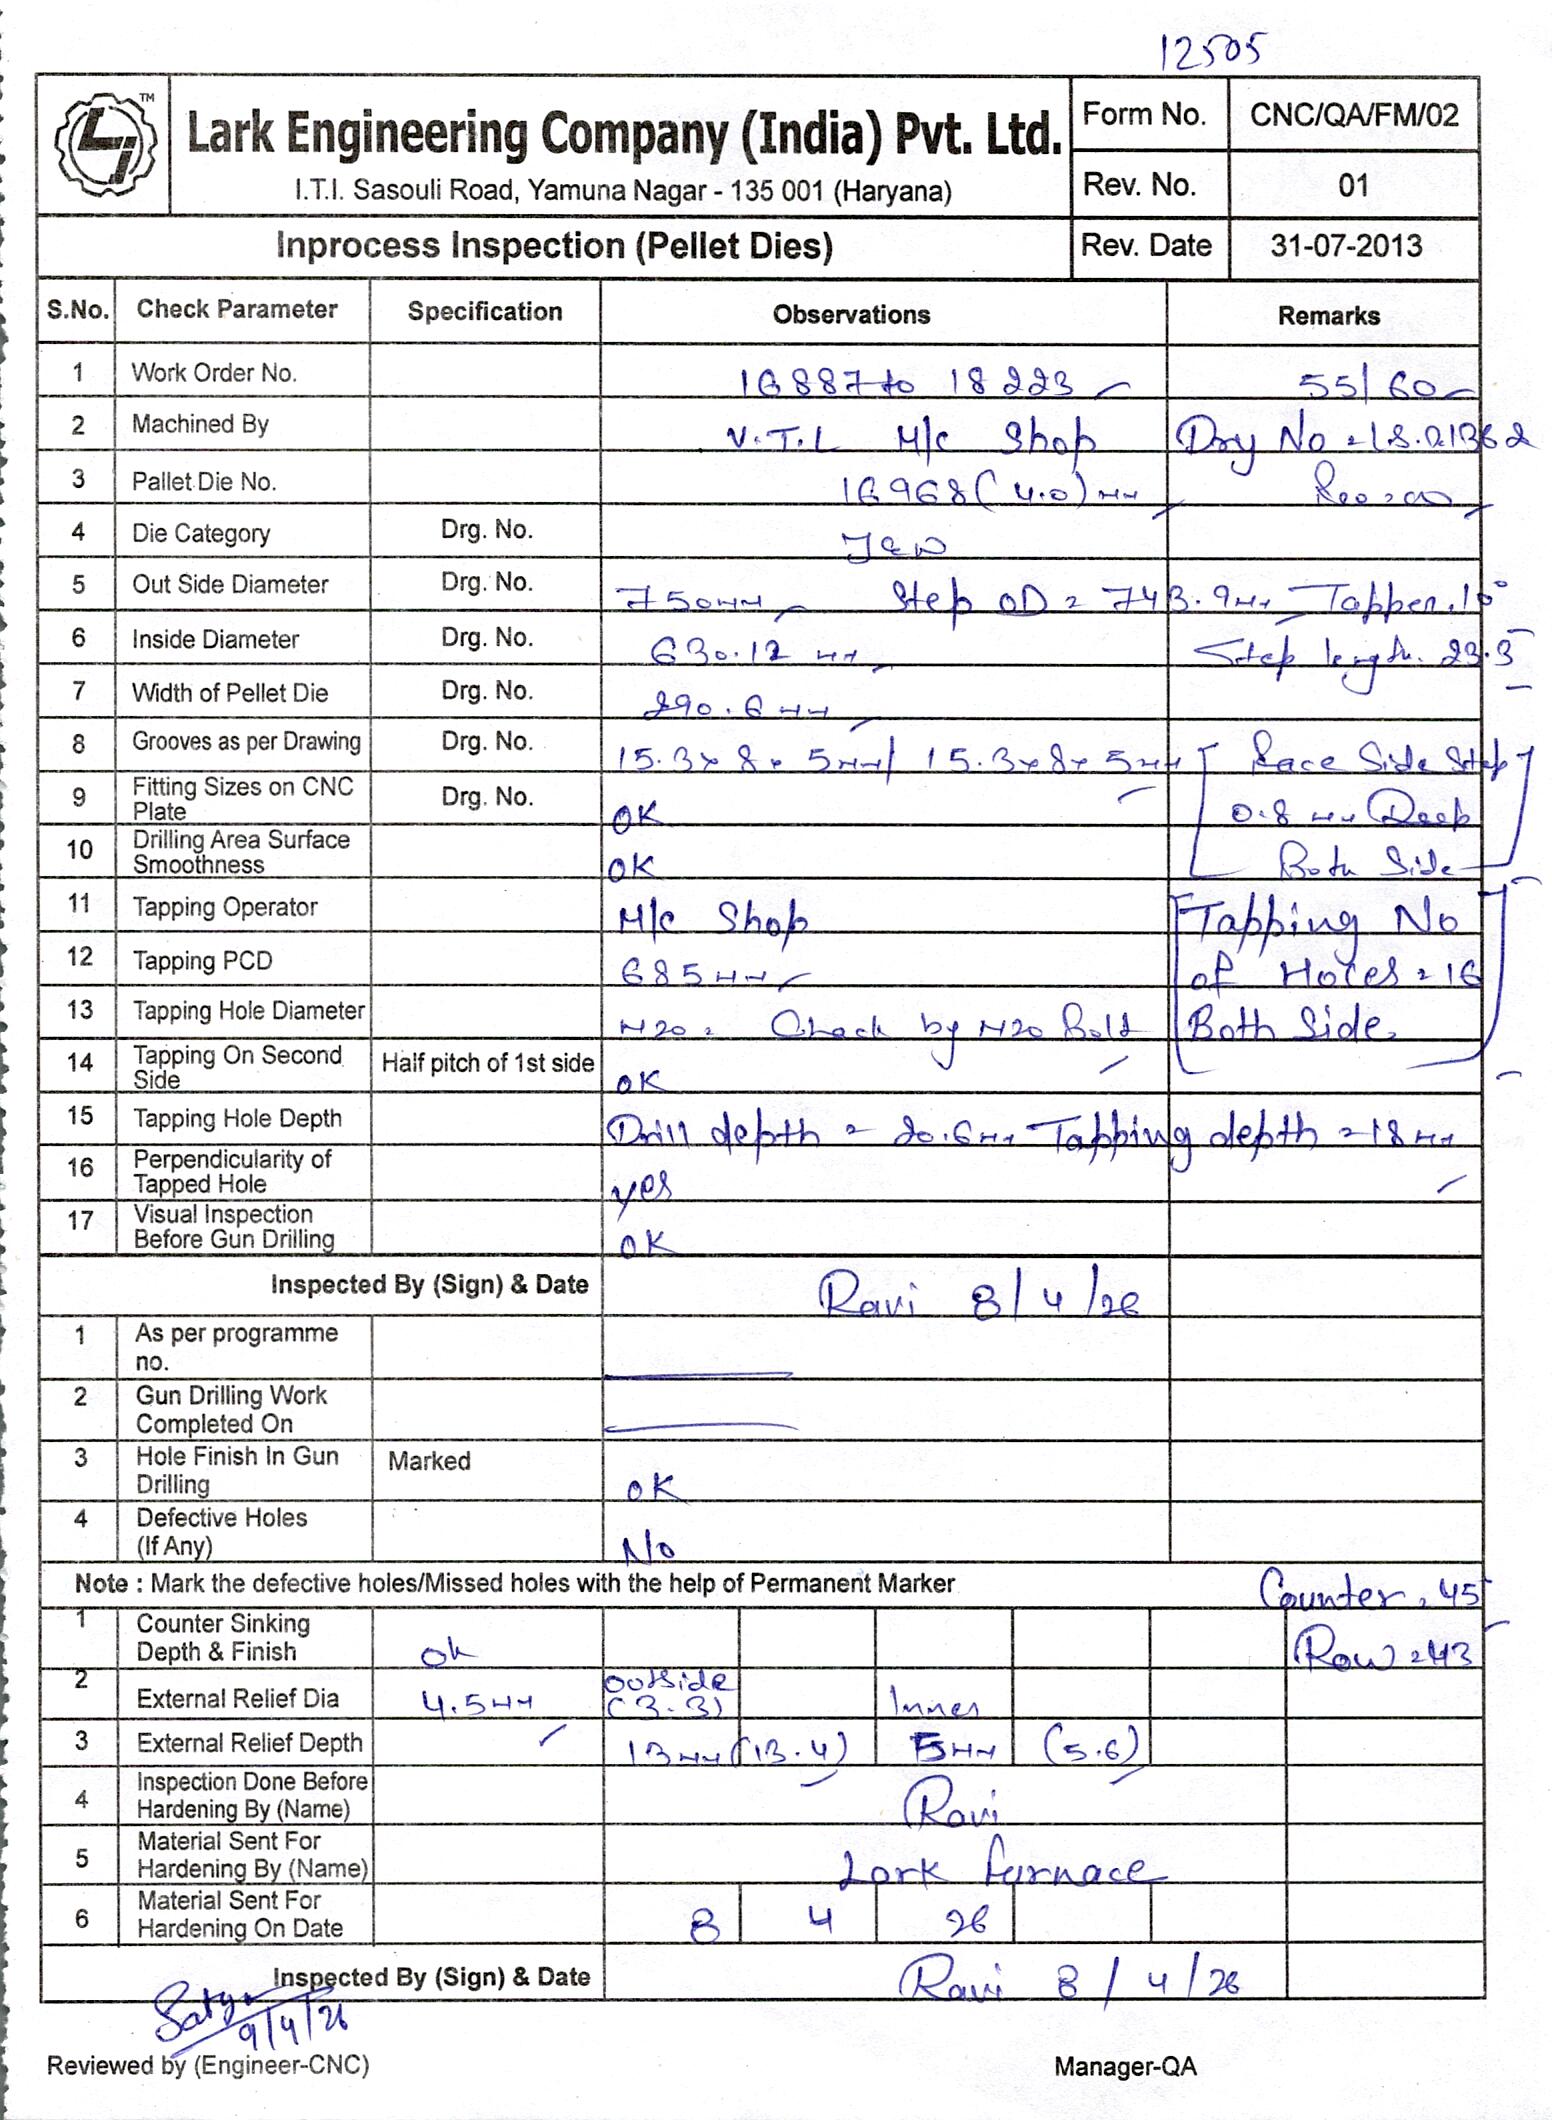 12505
TM
Lark Engineering Company (India) Pvt. Ltd.
I.T.I. Sasouli Road, Yamuna Nagar - 135 001 (Haryana)
Form No. CNC/QA/FM/02
Rev. No. 01
Inprocess Inspection (Pellet Dies) Rev. Date 31-07-2013
S.No. Check Parameter Specification Observations Remarks
1 Work Order No. 16887 to 18223 55/60
2 Machined By V.T.L M/c Shop
3 Pallet Die No. 16968 (4.0) mm
4 Die Category Drg. No.
5 Out Side Diameter Drg. No. 750mm Step OD = 743.9mm Tapper. 10°
6 Inside Diameter Drg. No. 630.12 mm Step length. 23.3
7 Width of Pellet Die Drg. No. 290.6mm
8 Grooves as per Drawing Drg. No. 15.3x8x5mm/ 15.3x8x5mm Race Side Step
9 Fitting Sizes on CNC Plate Drg. No. OK 0.8 mm Deep
10 Drilling Area Surface Smoothness OK Both Side
11 Tapping Operator M/c Shop Tapping No
12 Tapping PCD 685mm of Holes = 16
13 Tapping Hole Diameter M20 = Check by M20 Bolt Both Side
14 Tapping On Second Side Half pitch of 1st side OK
15 Tapping Hole Depth Drill depth = 20.6mm Tapping depth = 18mm
16 Perpendicularity of Tapped Hole yes
17 Visual Inspection Before Gun Drilling OK
Inspected By (Sign) & Date Ravi 8/4/26
1 As per programme no.
2 Gun Drilling Work Completed On
3 Hole Finish In Gun Drilling Marked OK
4 Defective Holes (If Any) No
Note : Mark the defective holes/Missed holes with the help of Permanent Marker Counter = 45
1 Counter Sinking Depth & Finish Ok Row = 43
2 External Relief Dia 4.5mm Outside (3.3) Inner
3 External Relief Depth 13mm (13.4) 5mm (5.6)
4 Inspection Done Before Hardening By (Name) Ravi
5 Material Sent For Hardening By (Name) Lark furnace
6 Material Sent For Hardening On Date 8 4 26
Inspected By (Sign) & Date Ravi 8/4/26
Satya
9/4/26
Reviewed by (Engineer-CNC) Manager-QA